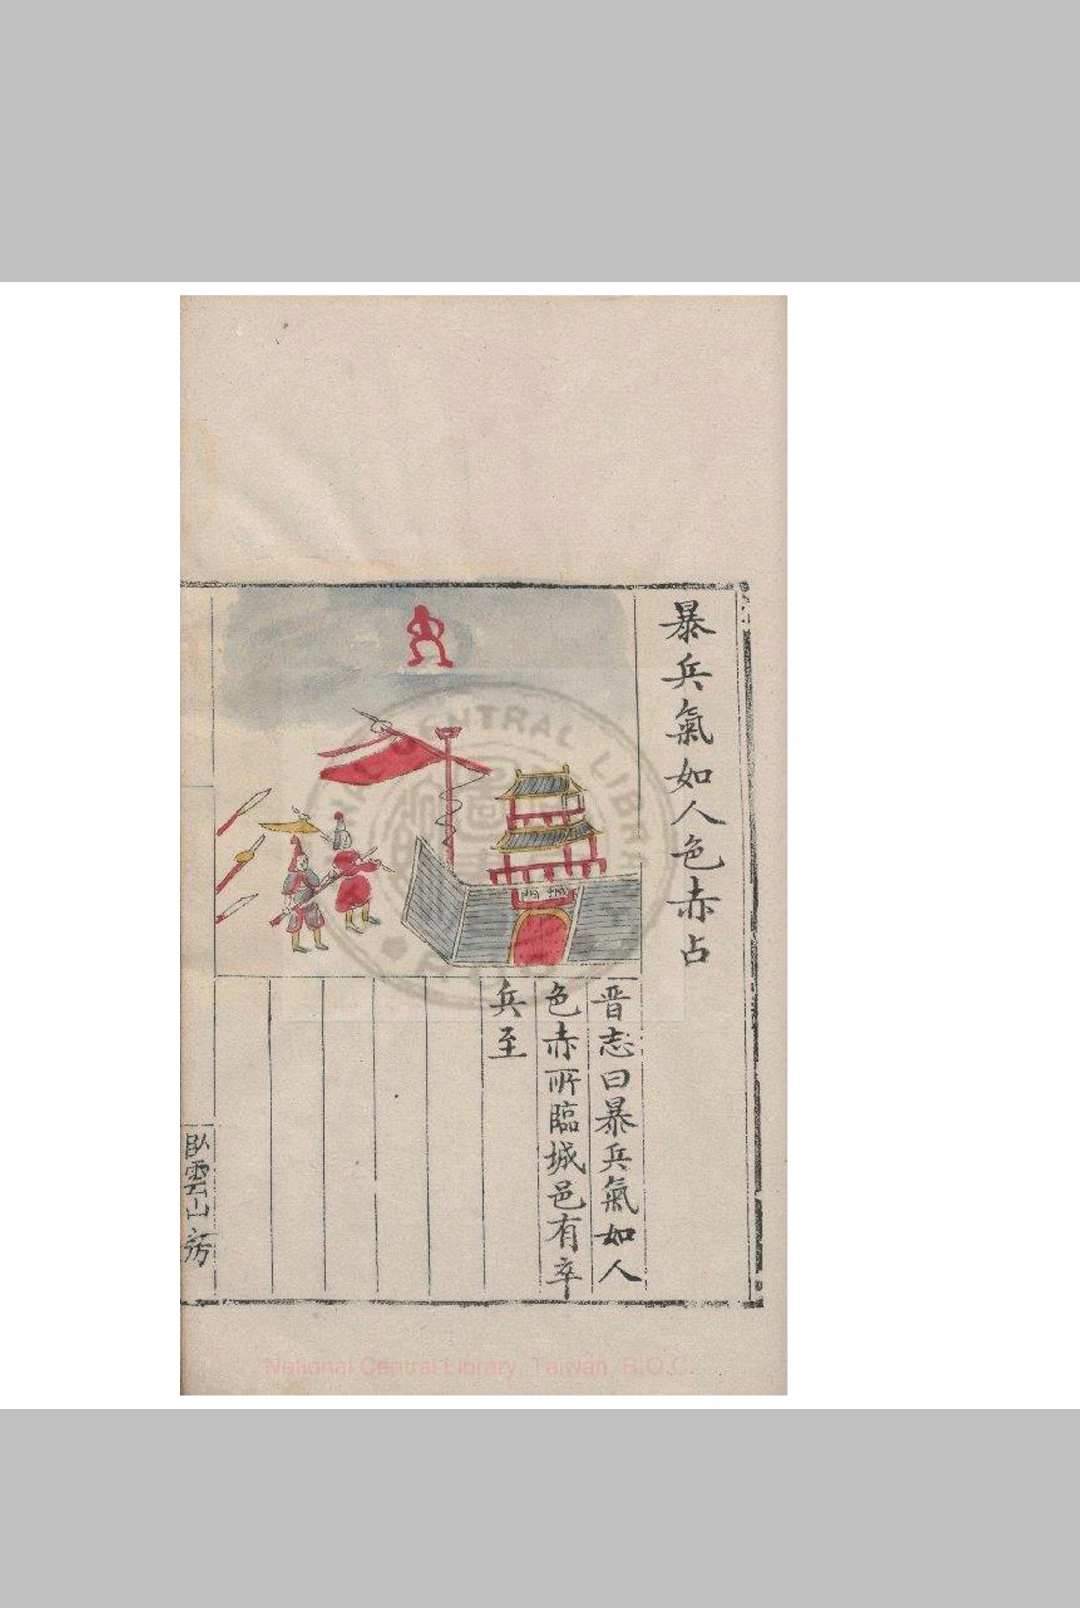 暴兵氣如人色赤占
晋志曰暴兵氣如人
色赤所臨城邑有卒
兵至
臥雲山房
National Central Library, Taiwan, R.O.C.